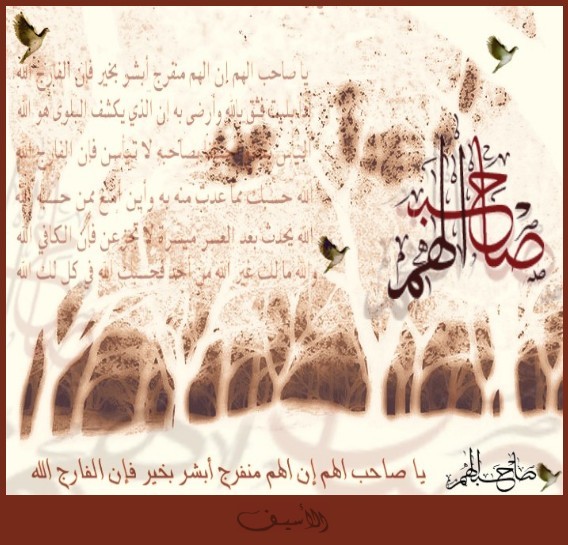 يا صاحب الهم إن الهم منفرج أبشر بخير فإن الفارج الله
فثق بالله وأرضى به إن الذي يكشف البلوى هو الله
اليأس بصاحبه لا تيأسن فإن الفارج الله
الله حسبك مما عدت منه به وأين أمنع ممن حسبه الله
الله يحدث بعد العسر ميسرة لا تجزعن فإن الكافي الله
الله ما لك غير الله من أحد فحسبك الله في كل لك الله
صاحب الهم
يا صاحب الهم إن الهم منفرج أبشر بخير فإن الفارج الله
صاحب الهم
الأسيف